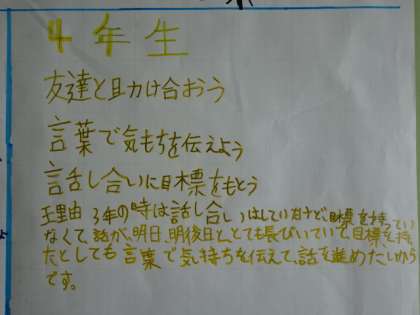 4年生
友達と助け合おう
言葉で気もちを伝えよう
話し合いに目標をもとう
理由 3年の時は話し合いはしていたけど、目標を持ってい
なくて、話が、明日、明後日と、とても長びいていて目標を持っ
たとしても言葉で気持ちを伝えて、話を進めたいから
です。